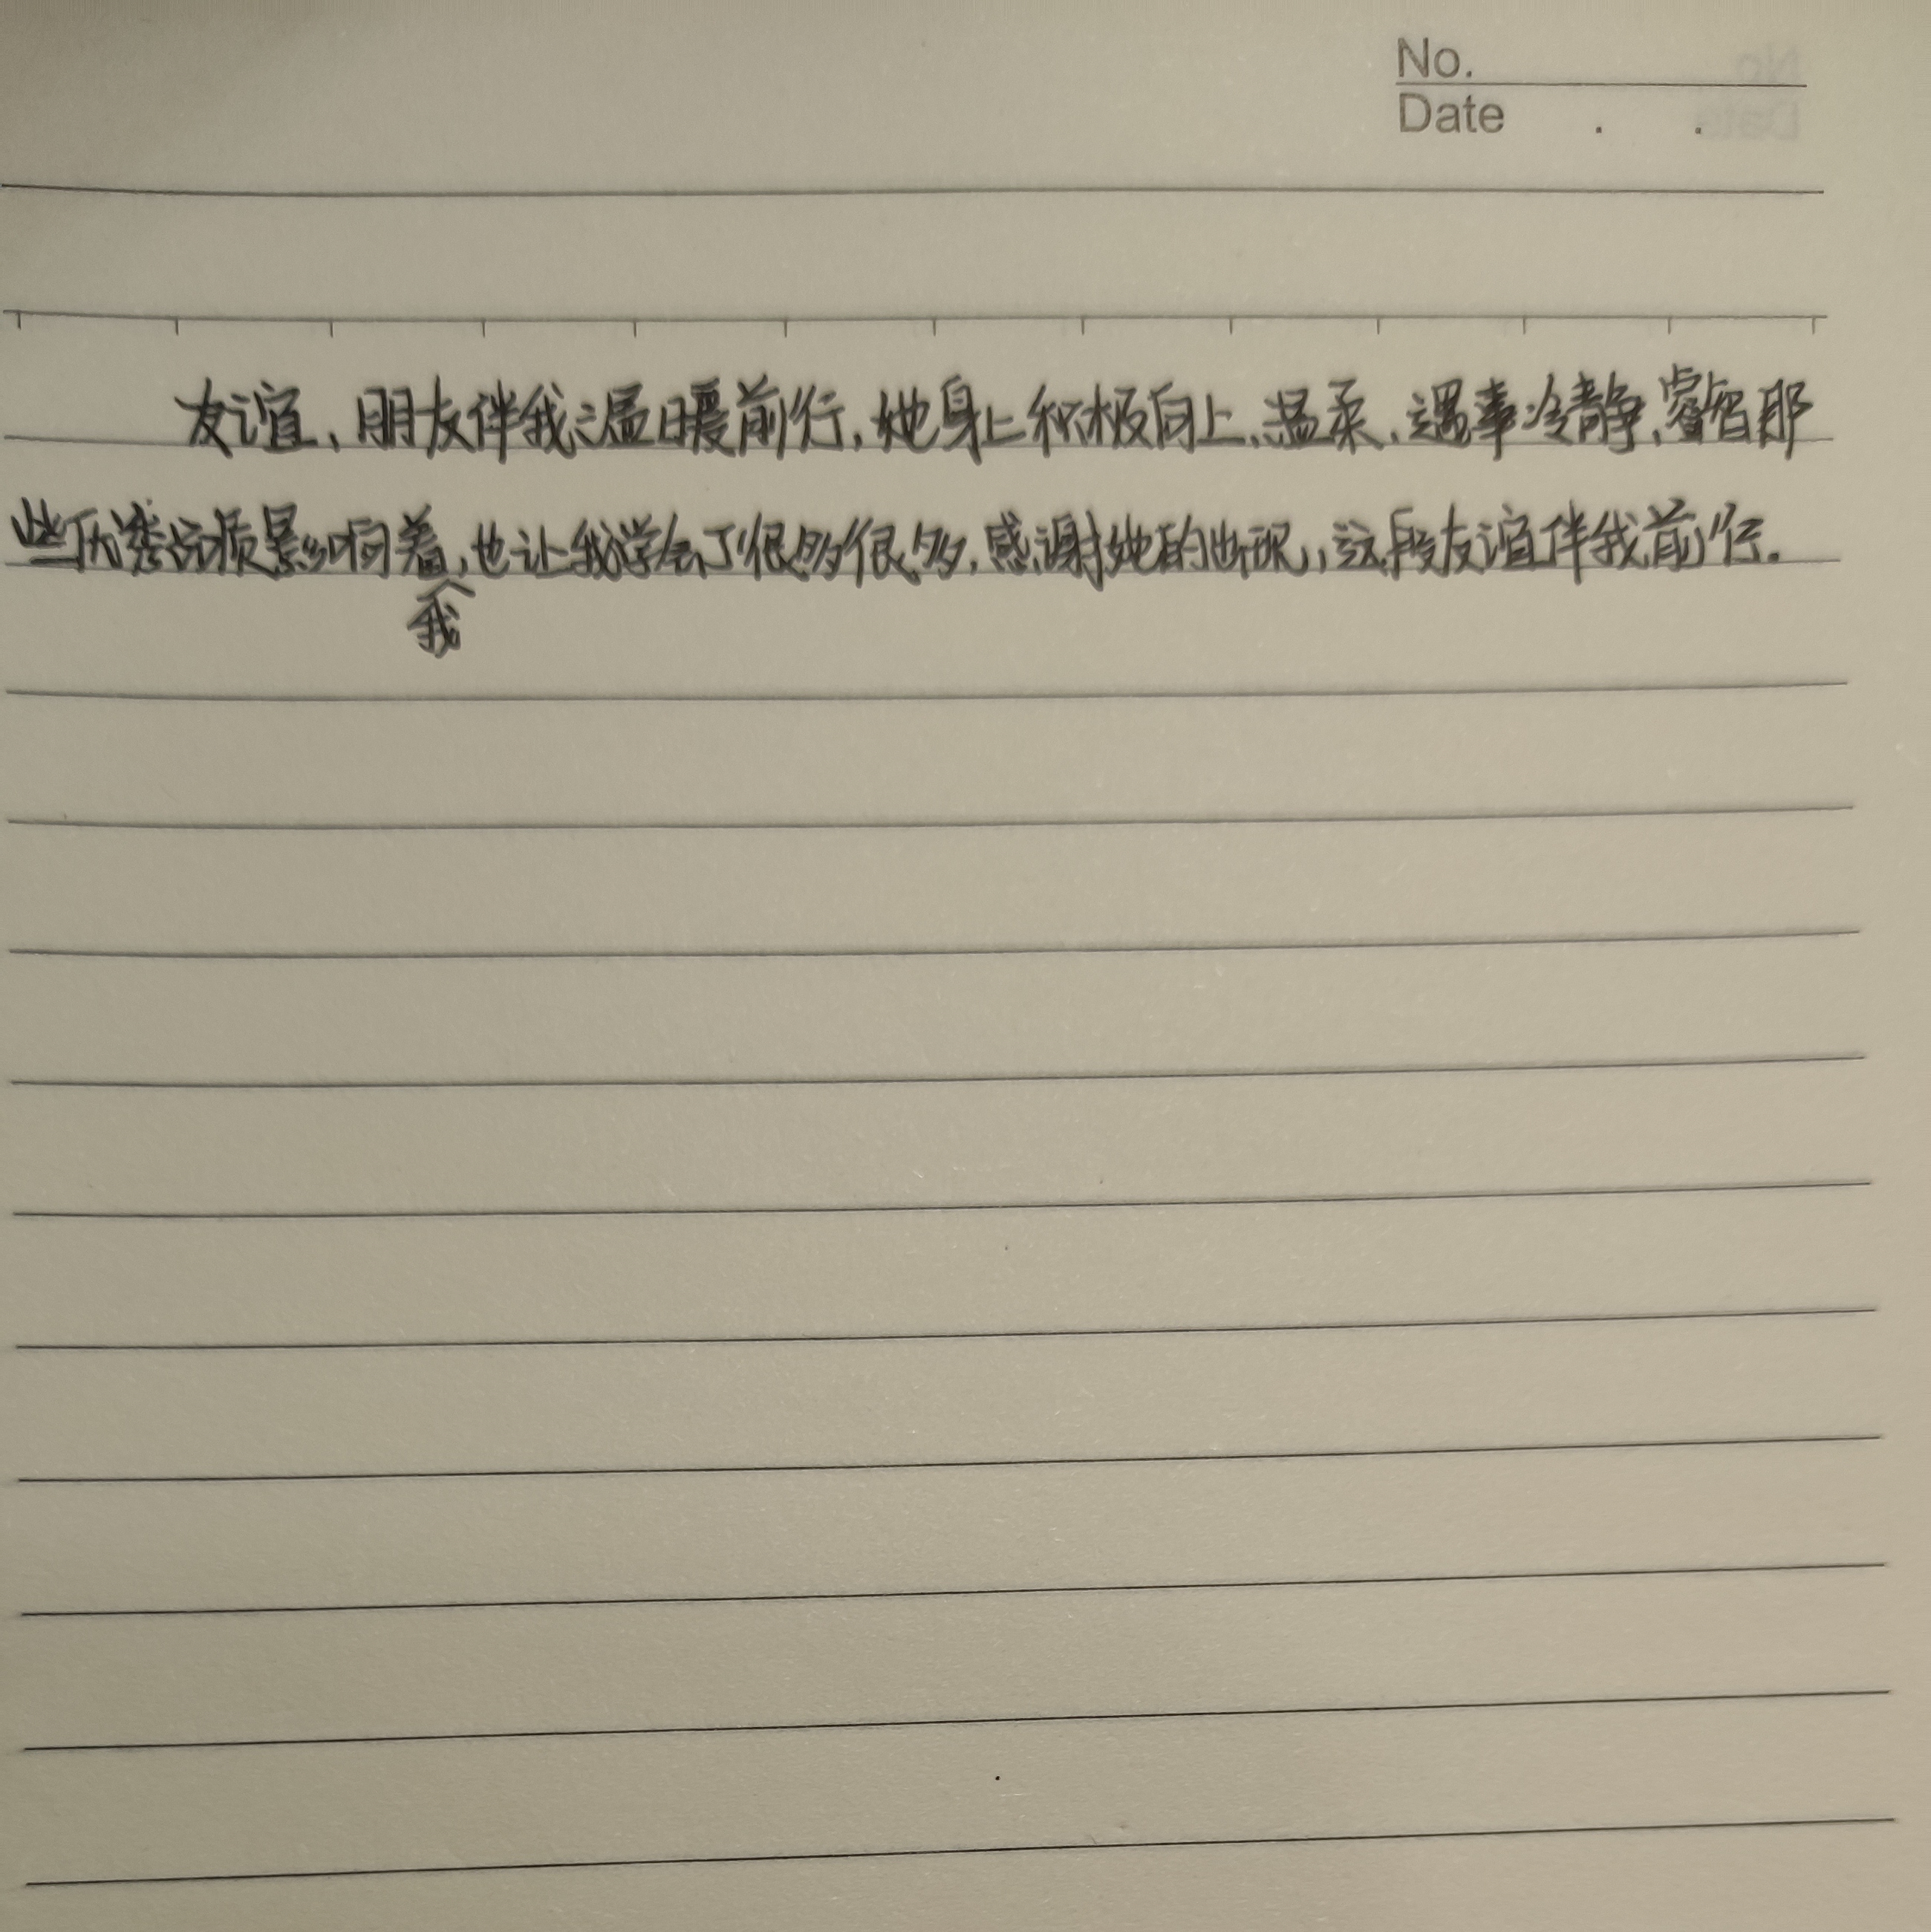 No.
Date . .
友谊、朋友伴我温暖前行,她身上积极向上、温柔、遇事冷静、睿智那
些优秀品质影响着我,也让我学会了很多很多,感谢她的出现,这段友谊伴我前行。